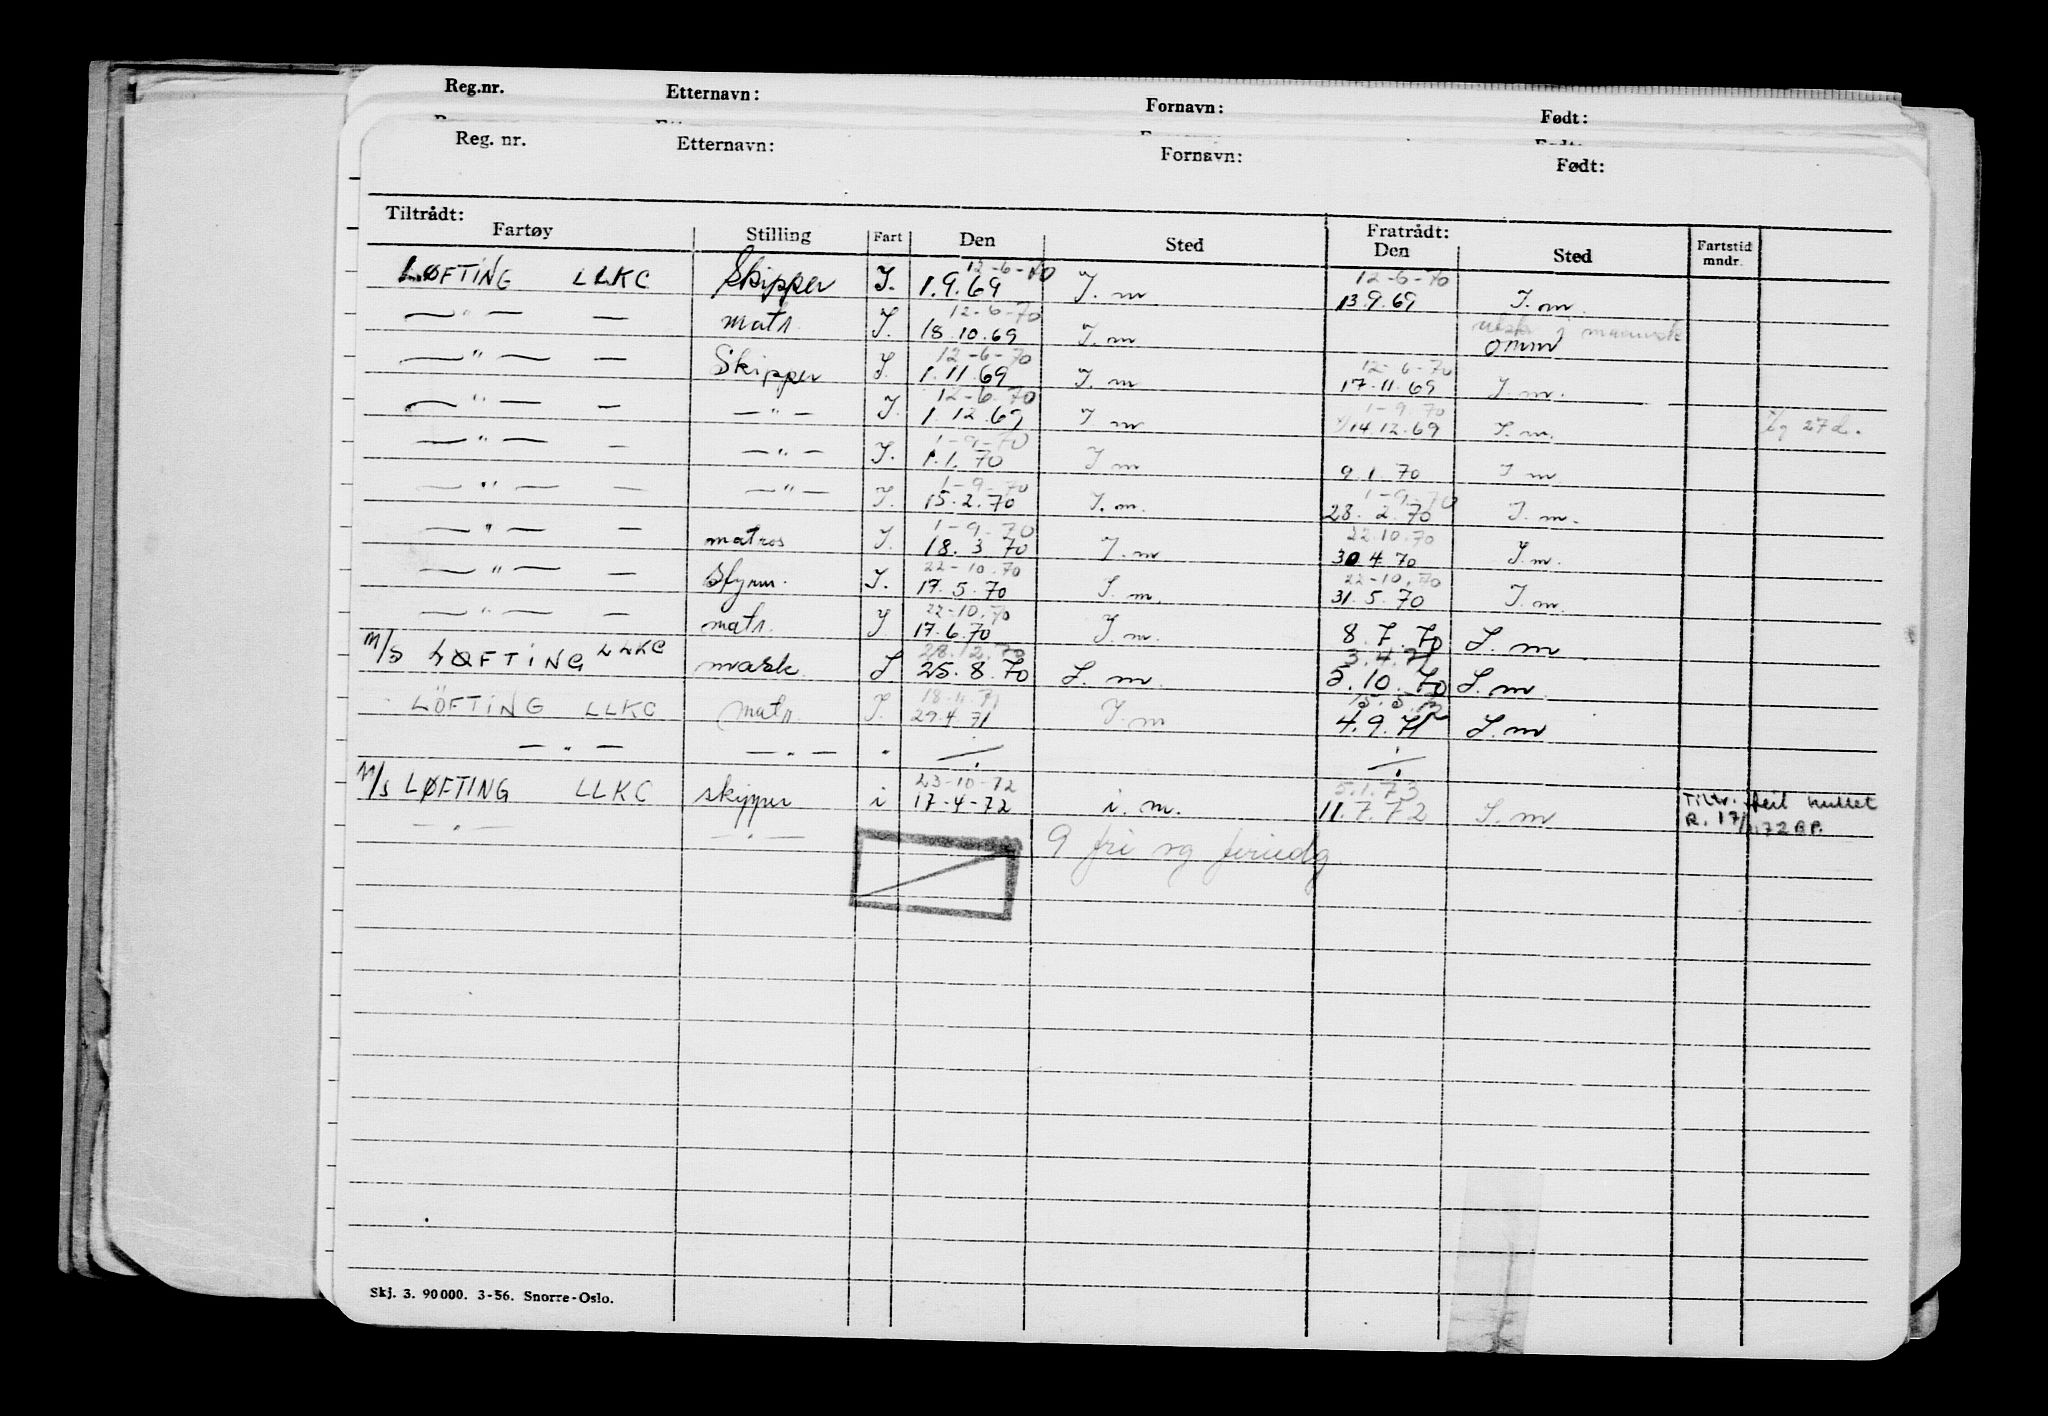 Reg.nr. Etternavn: Fornavn: Født:
Reg. nr. Etternavn: Fornavn: Født:
Tiltrådt: Fratrådt:
Fartøy Stilling Fart Den Sted Den Sted Fartstid mndr.
12-6-70 12-6-70
LØFTING LLKC Skipper I. 1.9.69 I. m 13.9.69 I. m.
12-6-70
— " — — matr. I. 18.10.69 I. m omm
12-6-70 12-6-70
— " — — Skipper I. 1.11.69 I. m 17.11.69 I m.
12-6-70 1-9-70
— " — — — " — I. 1.12.69 I m 14.12.69 I. m. 27 d.
1-9-70
— " — — — " — I. 1.1.70 I m 9.1.70 I m
1-9-70 1-9-70
— " — — — " — I. 15.2.70 I. m. 28.2.70 I. m.
1-9-70 22.10.70
— " — — matros I. 18.3.70 I. m 30.4.70 I. m.
22-10.70 22-10.70
— " — — styrm. I. 17.5.70 I. m. 31.5.70 I. m.
22-10.70
— " — — matr. I 17.6.70 I. m. 8.7.70 I. m
28.12.70 3.4.71
M/S LØFTING LLKC mask. I 25.8.70 I. m. 5.10.70 I. m
18.11.71
LÖFTING LLKC matr. I. 29.4.71 I. m 4.9.71 I. m
— " — — " — "
23-10-72 5.1.73
M/S LØFTING LLKC skipper i 17-4-72 i. m. 11.7.72 I. m Tiltr. feil nullet
R. 17/ .72 BP.
— " — — " — 9 fri og feriedg
Skj. 3. 90000. 3-56. Snorre-Oslo.